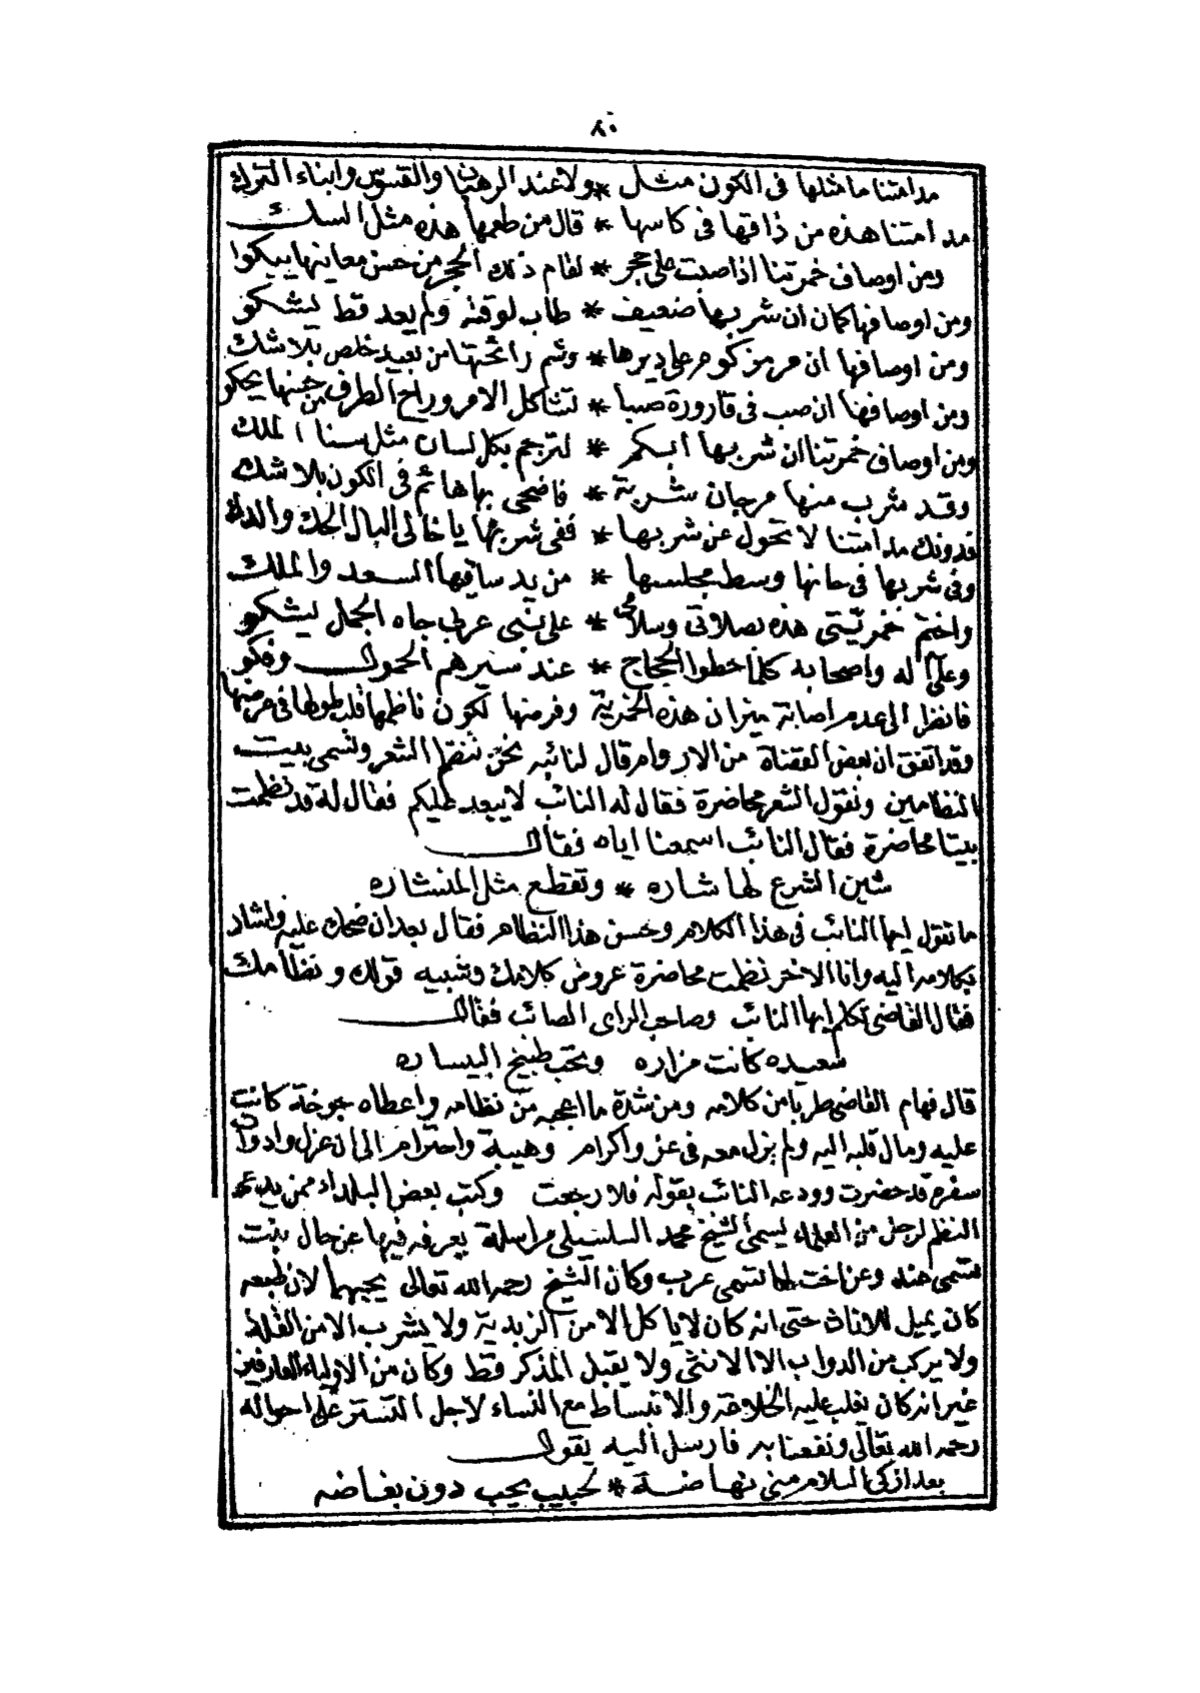 ٨٠
مدامتنا ما مثلها فى الكون مثل * ولا عند الرهبان والقسوس وابناء الترك
مدامتنا هذه من ذاقها فى كاسها * قال من طعمها هذه مثل السك
ومن اوصاف خمرتنا اذا صبت على حجر * لقام ذلك الحجر من حسن معانيها يبكوا
ومن اوصافها كمان ان شربها ضعيف * طاب لوقته ولم يعد قط ليشكو
ومن اوصافها ان مر مزكوم على ديرها * وشم رائحتها من بعيد خلص بلا شك
ومن اوصافها ان صب فى قارورة صبا * لتشاكل الامر وراح الطرف من حسنها يحكو
ومن اوصاف خمرتنا ان شربها ابكم * لترجم بكل لسان مثل سنا الملك
وقد شرب منها مرجان شربة * فاضحى بها هائم فى الكون بلا شك
فدونك مدامتنا لا تحول عن شربها * ففى شربها يا خالى البال الحك والدك
وفى شربها فى حانها وسط مجلسها * من يد ساقيها السعد والملك
واختم خمريتى هذه بصلاتى وسلامى * على نبى عربى جاه الجمل ليشكو
وعلى اله واصحابه كلما خطوا الحجاج * عند سيرهم الحمول وفكو
فانظر الى عدم اصابة ميزان هذه الخمرية وفرضها لكون ناظمها قليطوطا فى عرضها
وقد اتفق ان بعض القضاة من الاروام قال لنائبه نحن ننظم الشعر ونسمى ببيت
النظامين ونقول الشعر محاضرة فقال له النائب لا يبعد عليكم فقال له قد نظمت
بيتا محاضرة فقال النائب اسمعنا اياه فقال
شين الشرع لها شاره * وتقطع مثل المنشاره
ما تقول ايها النائب فى هذا الكلام وحسن هذا النظام فقال بعد ان ضحك عليه واشار
بكلامه اليه وانا الاخر نظمت محاضرة عروض كلامك وشبيه قولك ونظامك
فقال القاضى تكلم ايها النائب وصاحب الراى الصائب فقال
سعيده كانت مزاره وتحب طبيخ البيساره
قال فهام القاضى طربا من كلامه ومن شدة ما اعجبه من نظامه واعطاه جوخة كانت
عليه ومال قلبه اليه ولم يزل معه فى عز واكرام وهيبة واحترام الى ان عزل واوان
سفره قد حضرت وودعه النائب بقوله فلا رجعت وكتب بعض البلداء ممن يدعى
النظم لرجل من العلماء يسمى الشيخ محمد السلسيلى مراسلة يعرفه فيها عن حال بنت
تسمى هند وعن اخت لها تسمى عرب وكان الشيخ رحمه الله تعالى يحبهما لان طبعه
كان يميل للاناث حتى انه كان لا ياكل الا من الزبدية ولا يشرب الا من القلة
ولا يركب من الدواب الا الانثى ولا يقبل المذكر قط وكان من الاولياء العارفين
غير انه كان يغلب عليه الخلاعة والانبساط مع النساء لاجل التستر على احواله
رحمه الله تعالى ونفعنا به فارسل اليه يقول
بعد ازكى السلام منى نهاضة * لحبيب يحب دون بغاضه